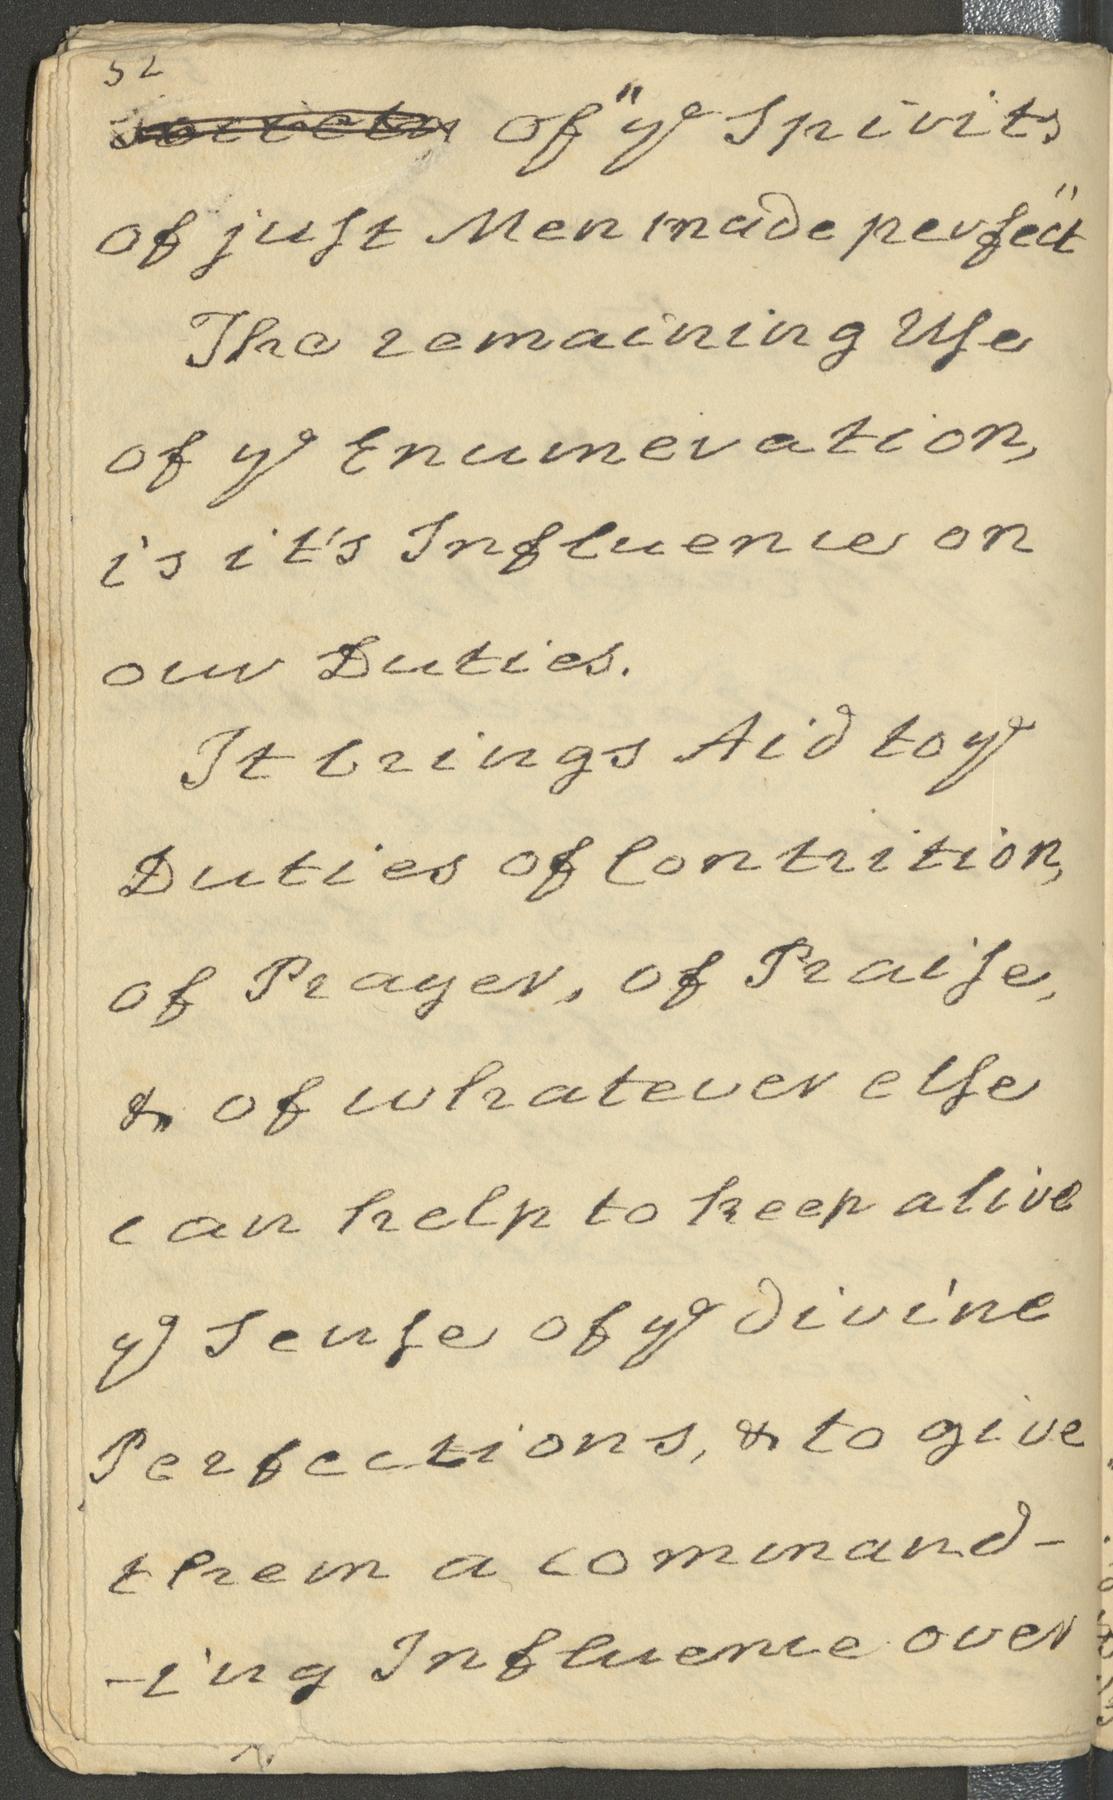 52
Society of "yᵉ Spirits
of juſt Men made perfect"
The remaining Uſe
of yᵉ Enumeration,
is it's Influence on
our Duties.
It brings Aid to yᵉ
Duties of Contrition,
of Prayer, of Praiſe,
& of whatever elſe
can help to keep alive
yᵉ Senſe of yᵉ divine
Perfections, & to give
them a command-
-ing Influence over